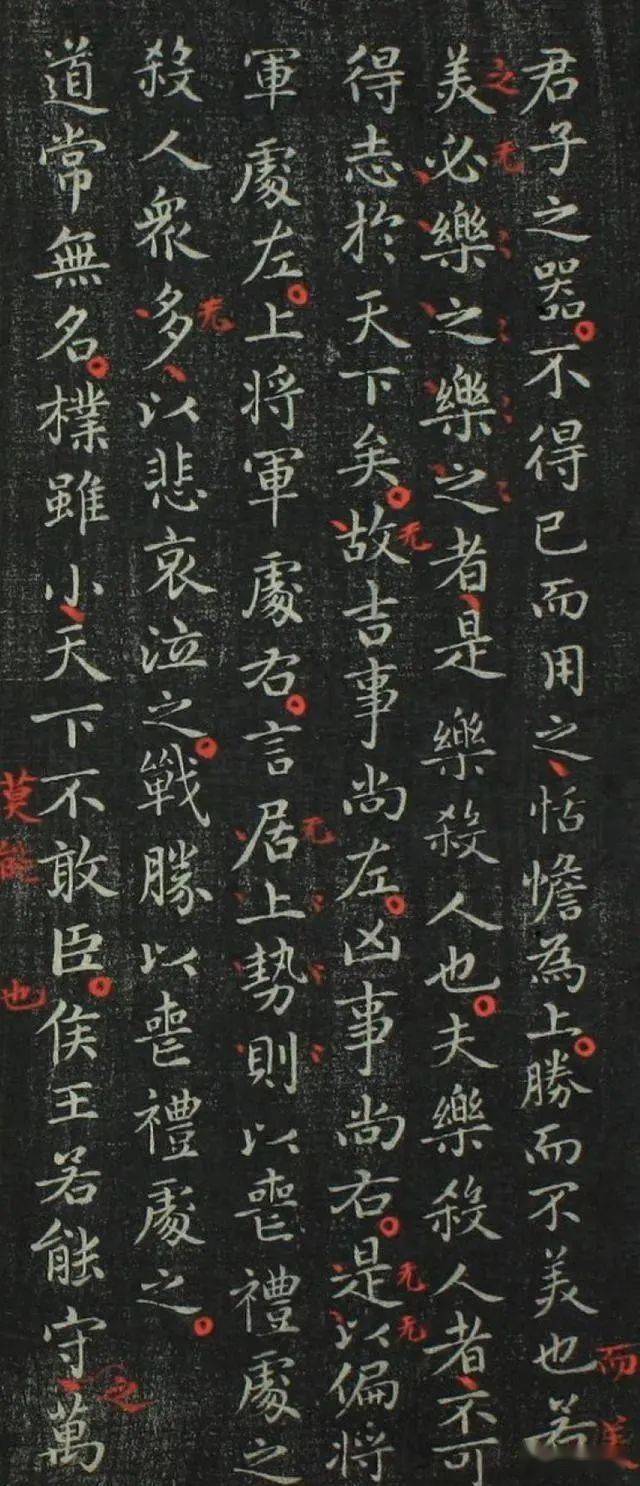 君子之器。不得已而用之、恬憺為上。勝而不美也若
美必樂之樂之者、是樂殺人也。夫樂殺人者、不可
得志於天下矣。故吉事尚左。凶事尚右。是以偏將
軍處左。上将軍處右。言居上勢則以喪禮處之
殺人衆多、以悲哀泣之。戰勝以喪禮處之。
道常無名。樸雖小、天下不敢臣。侯王若能守、萬
而美
之
无
无
无
无
无
无
之
莫能
也